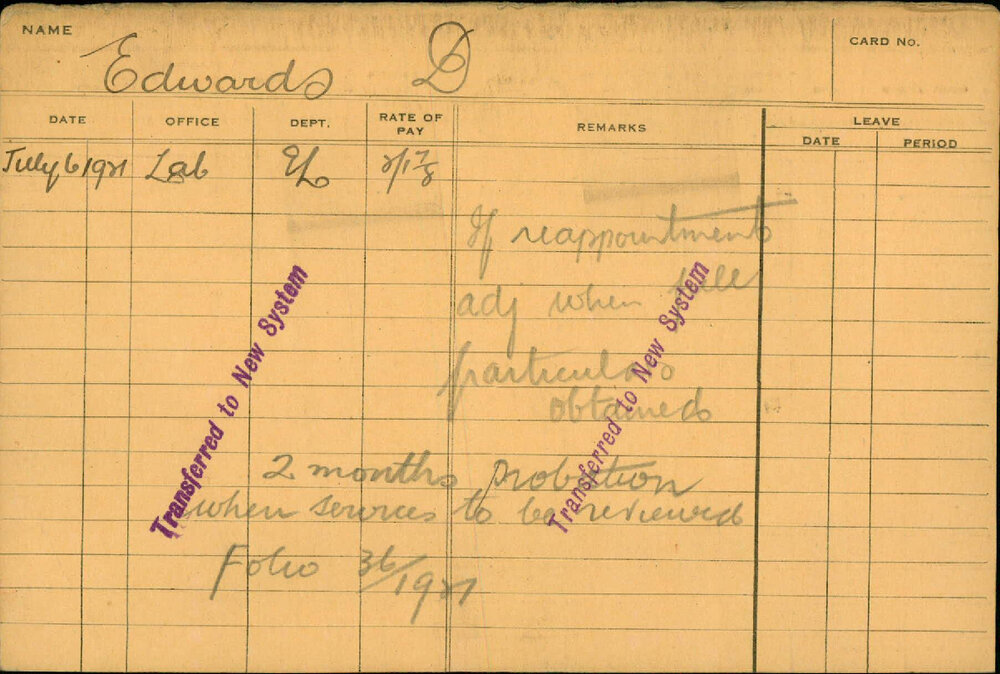 NAME Edwards D CARD No.
DATE OFFICE DEPT. RATE OF PAY REMARKS LEAVE
DATE PERIOD
July 6 1921 Lab EL 2/1 7/8
If reappointment
adj when full
particulars
obtained
2 months probation
when services to be reviewed
Folio 36/1921
Transferred to New System
Transferred to New System